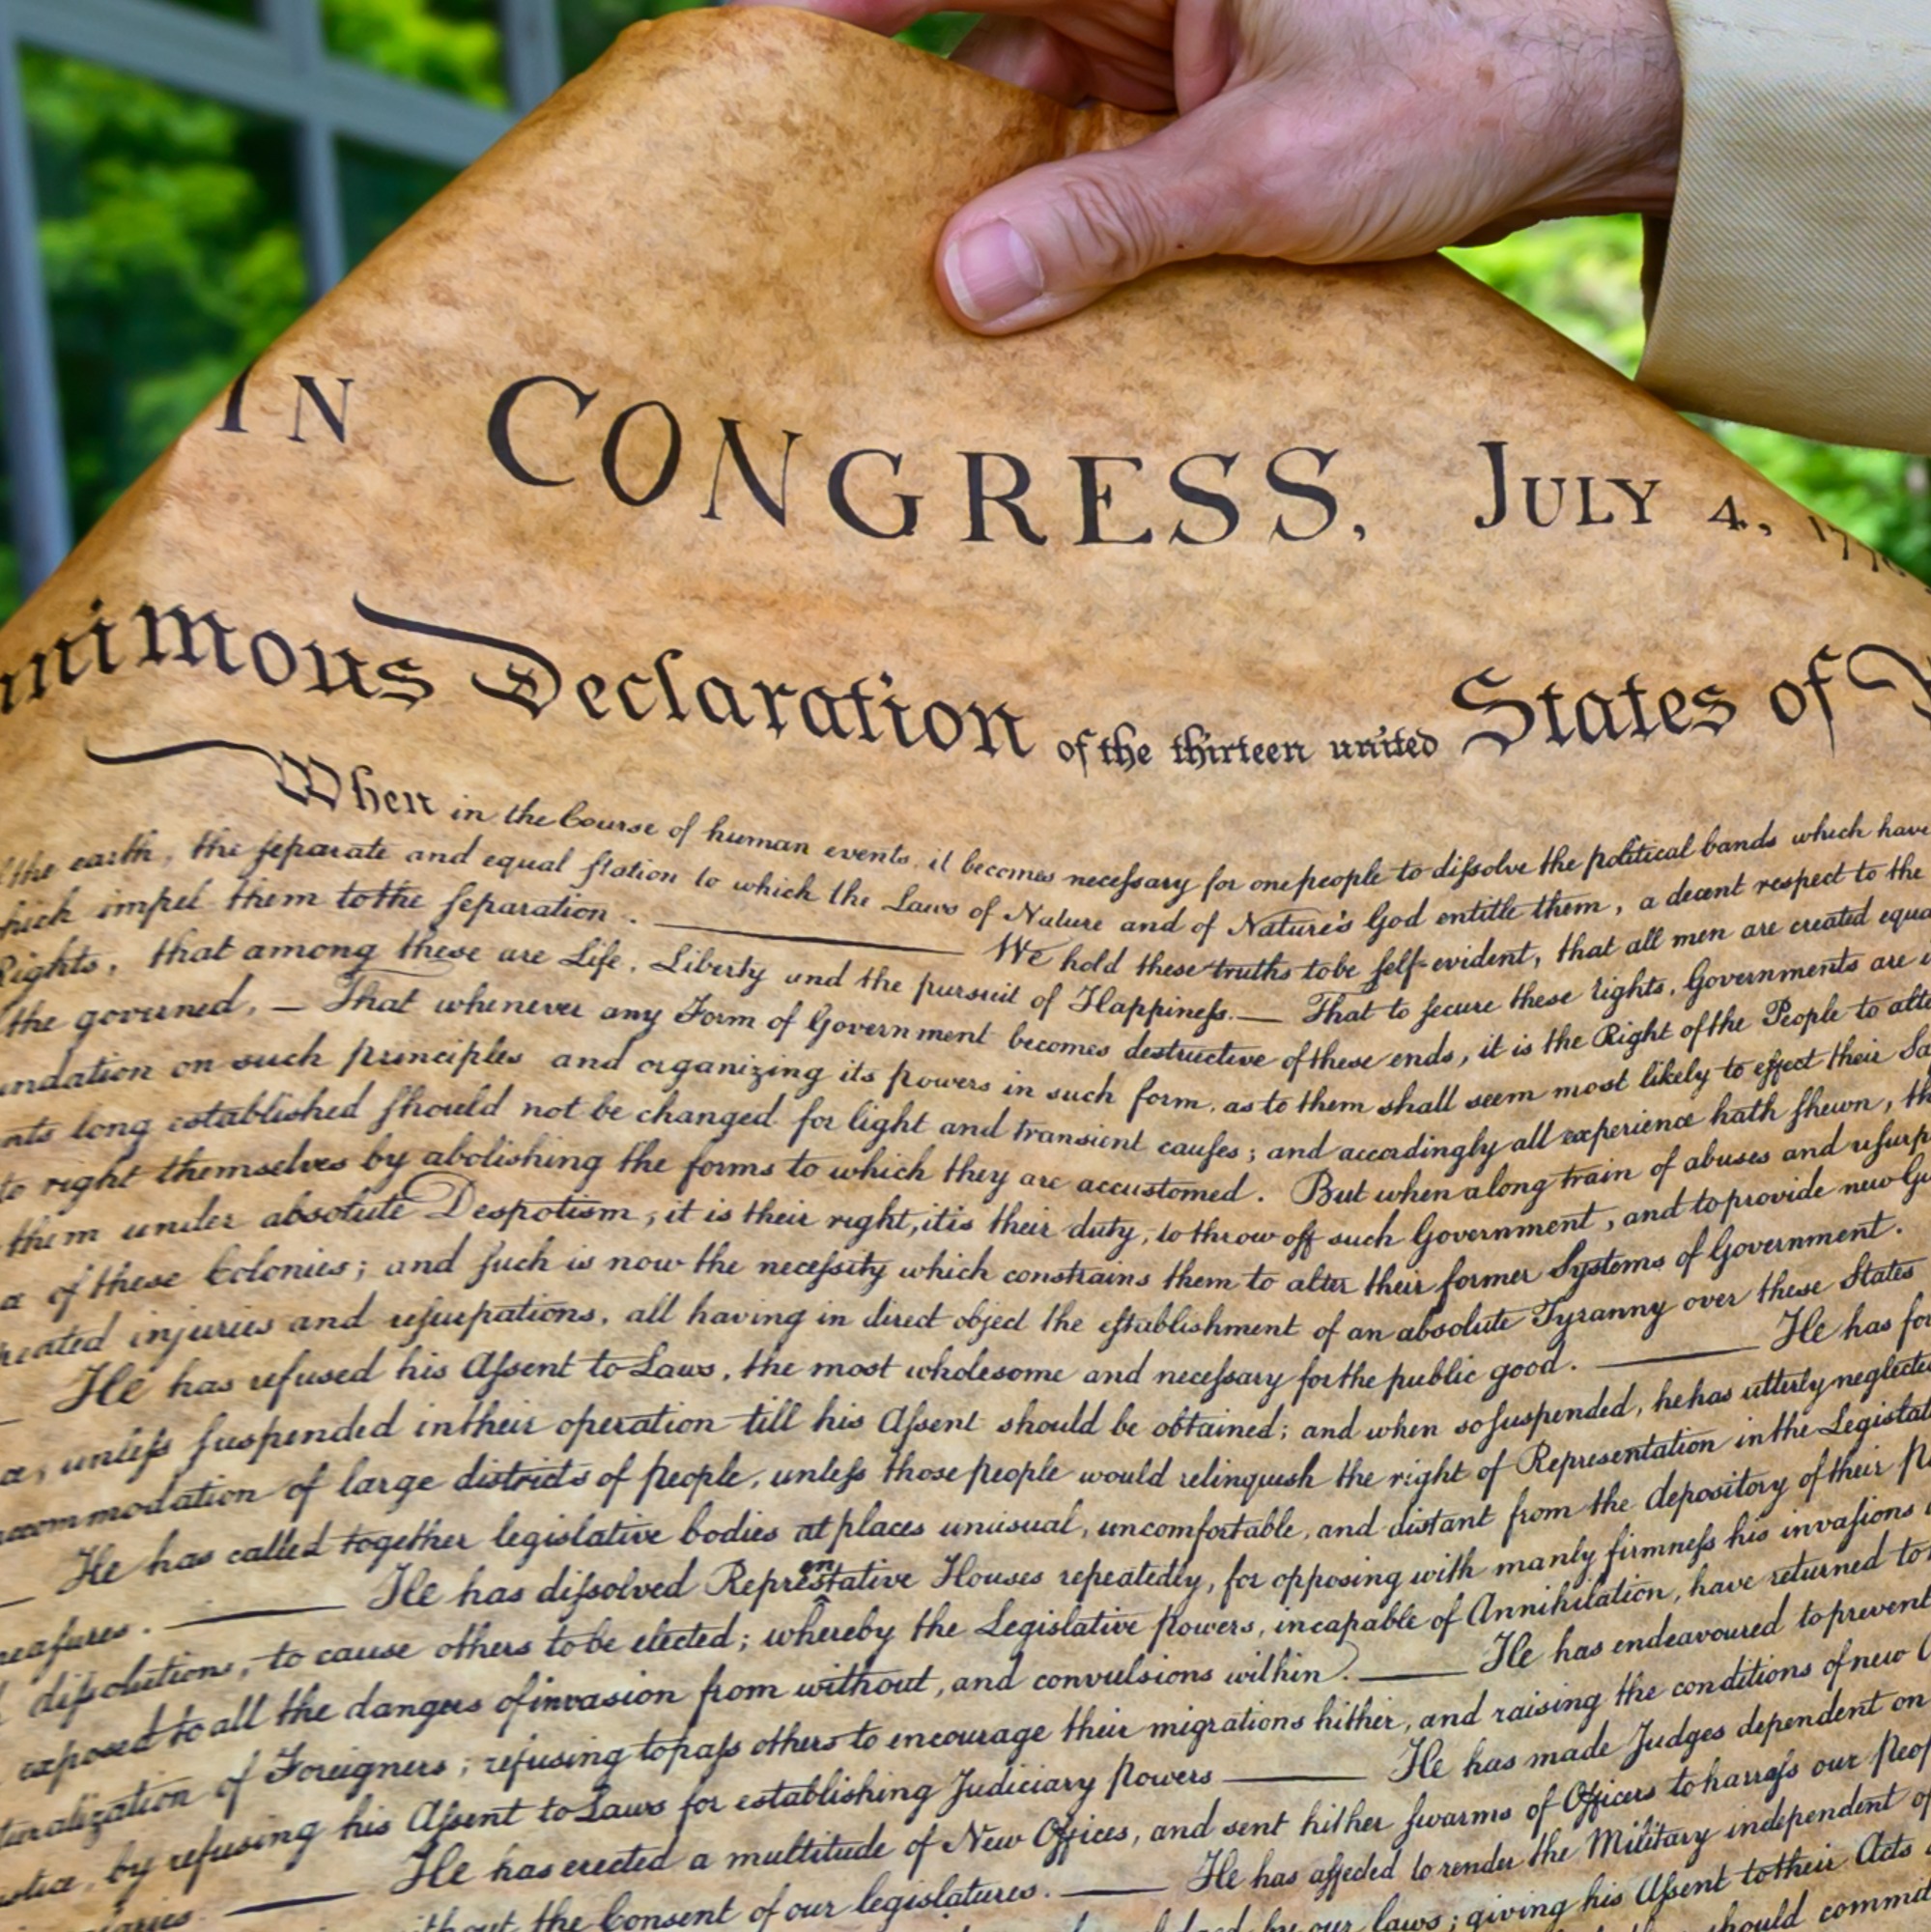 IN CONGRESS, JULY 4, 1776.
nimous Declaration of the thirteen united States of
When in the Course of human events, it becomes necessary for one people to dissolve the political bands which have
the earth, the separate and equal station to which the Laws of Nature and of Nature's God entitle them, a decent respect to the
hich impel them to the separation. — We hold these truths to be self-evident, that all men are created equa
Rights, that among these are Life, Liberty and the pursuit of Happiness. — That to secure these rights, Governments are i
the governed, — That whenever any Form of Government becomes destructive of these ends, it is the Right of the People to alte
undation on such principles and organizing its powers in such form, as to them shall seem most likely to effect their Sa
nts long established should not be changed for light and transient causes; and accordingly all experience hath shewn, th
to right themselves by abolishing the forms to which they are accustomed. But when a long train of abuses and usurp
them under absolute Despotism, it is their right, it is their duty, to throw off such Government, and to provide new Gu
e of these Colonies; and such is now the necessity which constrains them to alter their former Systems of Government.
peated injuries and usurpations, all having in direct object the establishment of an absolute Tyranny over these States
— He has refused his Assent to Laws, the most wholesome and necessary for the public good. — He has for
e, unless suspended in their operation till his Assent should be obtained; and when so suspended, he has utterly neglecte
accommodation of large districts of people, unless those people would relinquish the right of Representation in the Legislat
— He has called together legislative bodies at places unusual, uncomfortable, and distant from the depository of their Pu
measures. — He has dissolved Representative Houses repeatedly, for opposing with manly firmness his invasions
dissolutions, to cause others to be elected; whereby the Legislative powers, incapable of Annihilation, have returned to
exposed to all the dangers of invasion from without, and convulsions within. — He has endeavoured to prevent
turalization of Foreigners; refusing to pass others to encourage their migrations hither, and raising the conditions of new
ustice, by refusing his Assent to Laws for establishing Judiciary powers — He has made Judges dependent on
laries. — He has erected a multitude of New Offices, and sent hither swarms of Officers to harrass our peop
ithout the Consent of our legislatures. — He has affected to render the Military independent of
by our laws; giving his Assent to their Acts
should commit